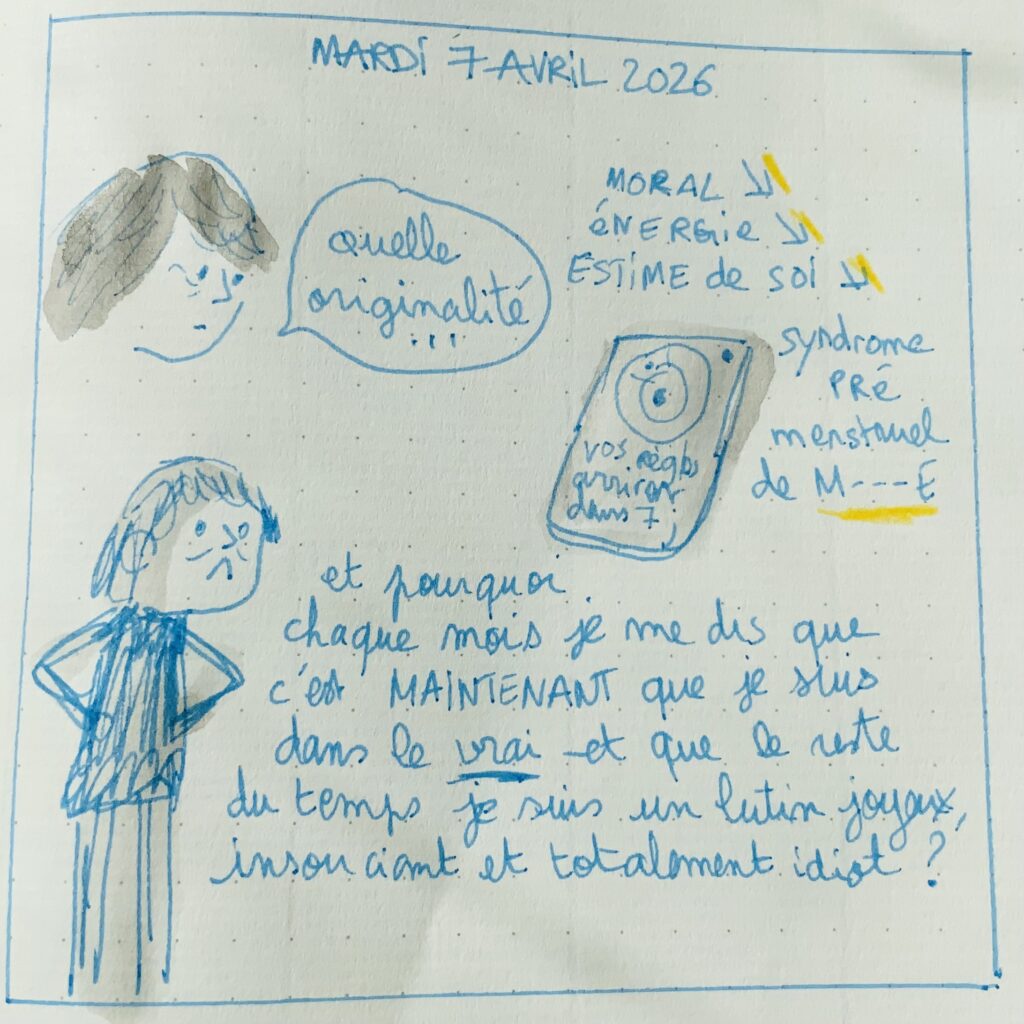 MARDI 7 AVRIL 2026
quelle
originalité
...
MORAL ↘
éNERGie ↘
ESTIME de soi ↘
syndrome
PRé
menstruel
de M---E
vos règles
arriveront
dans 7 j
et pourquoi
chaque mois je me dis que
c'est MAINTENANT que je suis
dans le vrai et que le reste
du temps je suis un lutin joyeux,
insouciant et totalement idiot ?